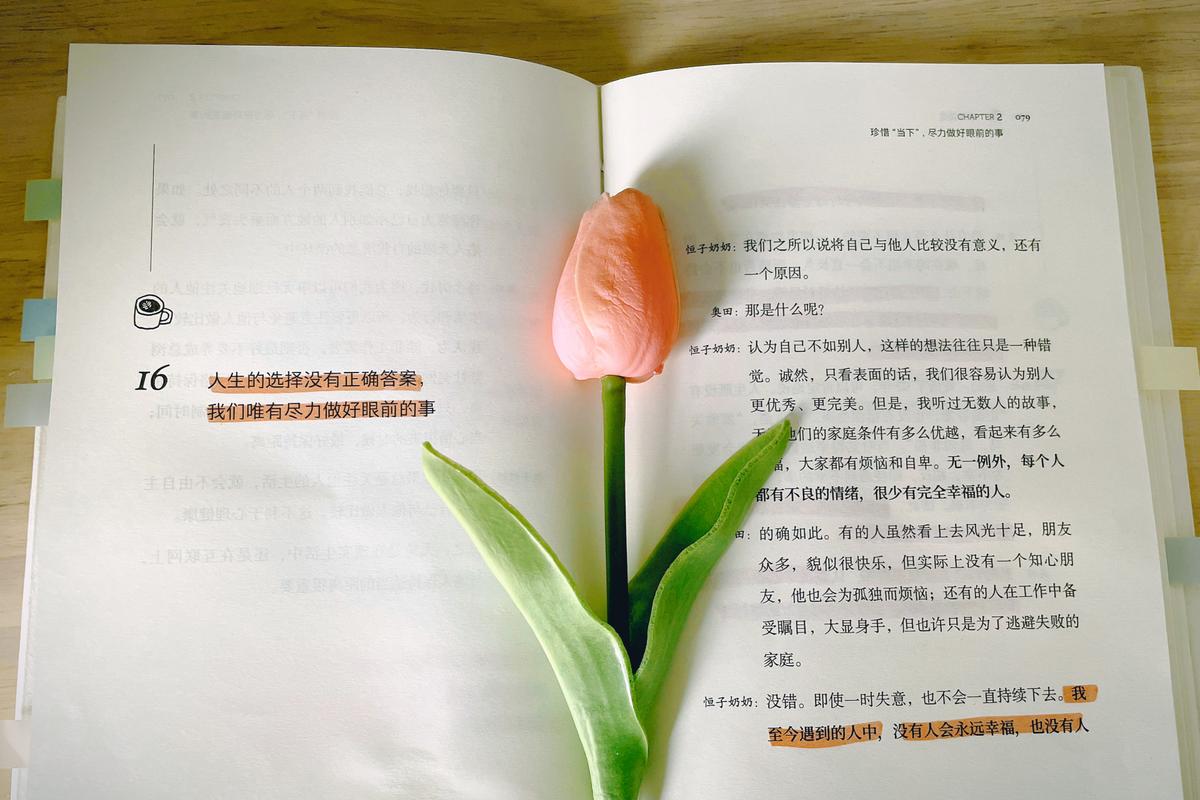 16
人生的选择没有正确答案，
我们唯有尽力做好眼前的事
CHAPTER 2 079
珍惜“当下”，尽力做好眼前的事
恒子奶奶：我们之所以说将自己与他人比较没有意义，还有
一个原因。
奥田：那是什么呢？
恒子奶奶：认为自己不如别人，这样的想法往往只是一种错
觉。诚然，只看表面的话，我们很容易认为别人
更优秀、更完美。但是，我听过无数人的故事，
他们的家庭条件有多么优越，看起来有多么
福，大家都有烦恼和自卑。无一例外，每个人
都有不良的情绪，很少有完全幸福的人。
田：的确如此。有的人虽然看上去风光十足，朋友
众多，貌似很快乐，但实际上没有一个知心朋
友，他也会为孤独而烦恼；还有的人在工作中备
受瞩目，大显身手，但也许只是为了逃避失败的
家庭。
恒子奶奶：没错。即使一时失意，也不会一直持续下去。我
至今遇到的人中，没有人会永远幸福，也没有人